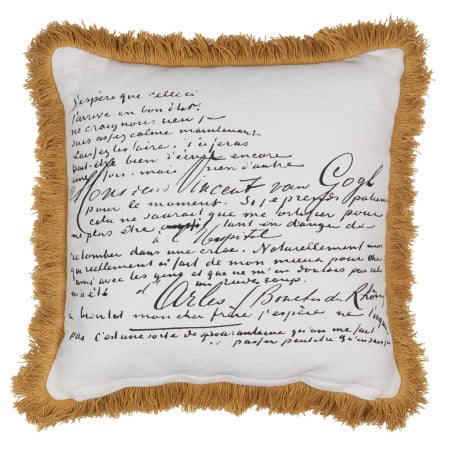 J'espère que celle ci
t'arrive en bon état.
ne craignons rien je
suis assez calme maintenant
Laissez les faire. t'écrirai
peut-être bien d'écrire encore
une fois. mais rien d'autre
Monsieur Vincent van Gogh
pour le moment. Si je prends patience
cela ne saurait que me fortifier pour
ne plus être tant en danger de
a l'Hospital
retomber dans une crise. Naturellement moi
qui réellement ai fait de mon mieux pour être
ami avec les gens et que ne m'en doutais pas cela
m'a été un rude coup.
Arles Bouches du Rhône
a bientot mon cher frère j'espère ne t'inquiète
pas C'est une sorte de quarantaine qu'on me fait
passer peutetre qu'en sais-je